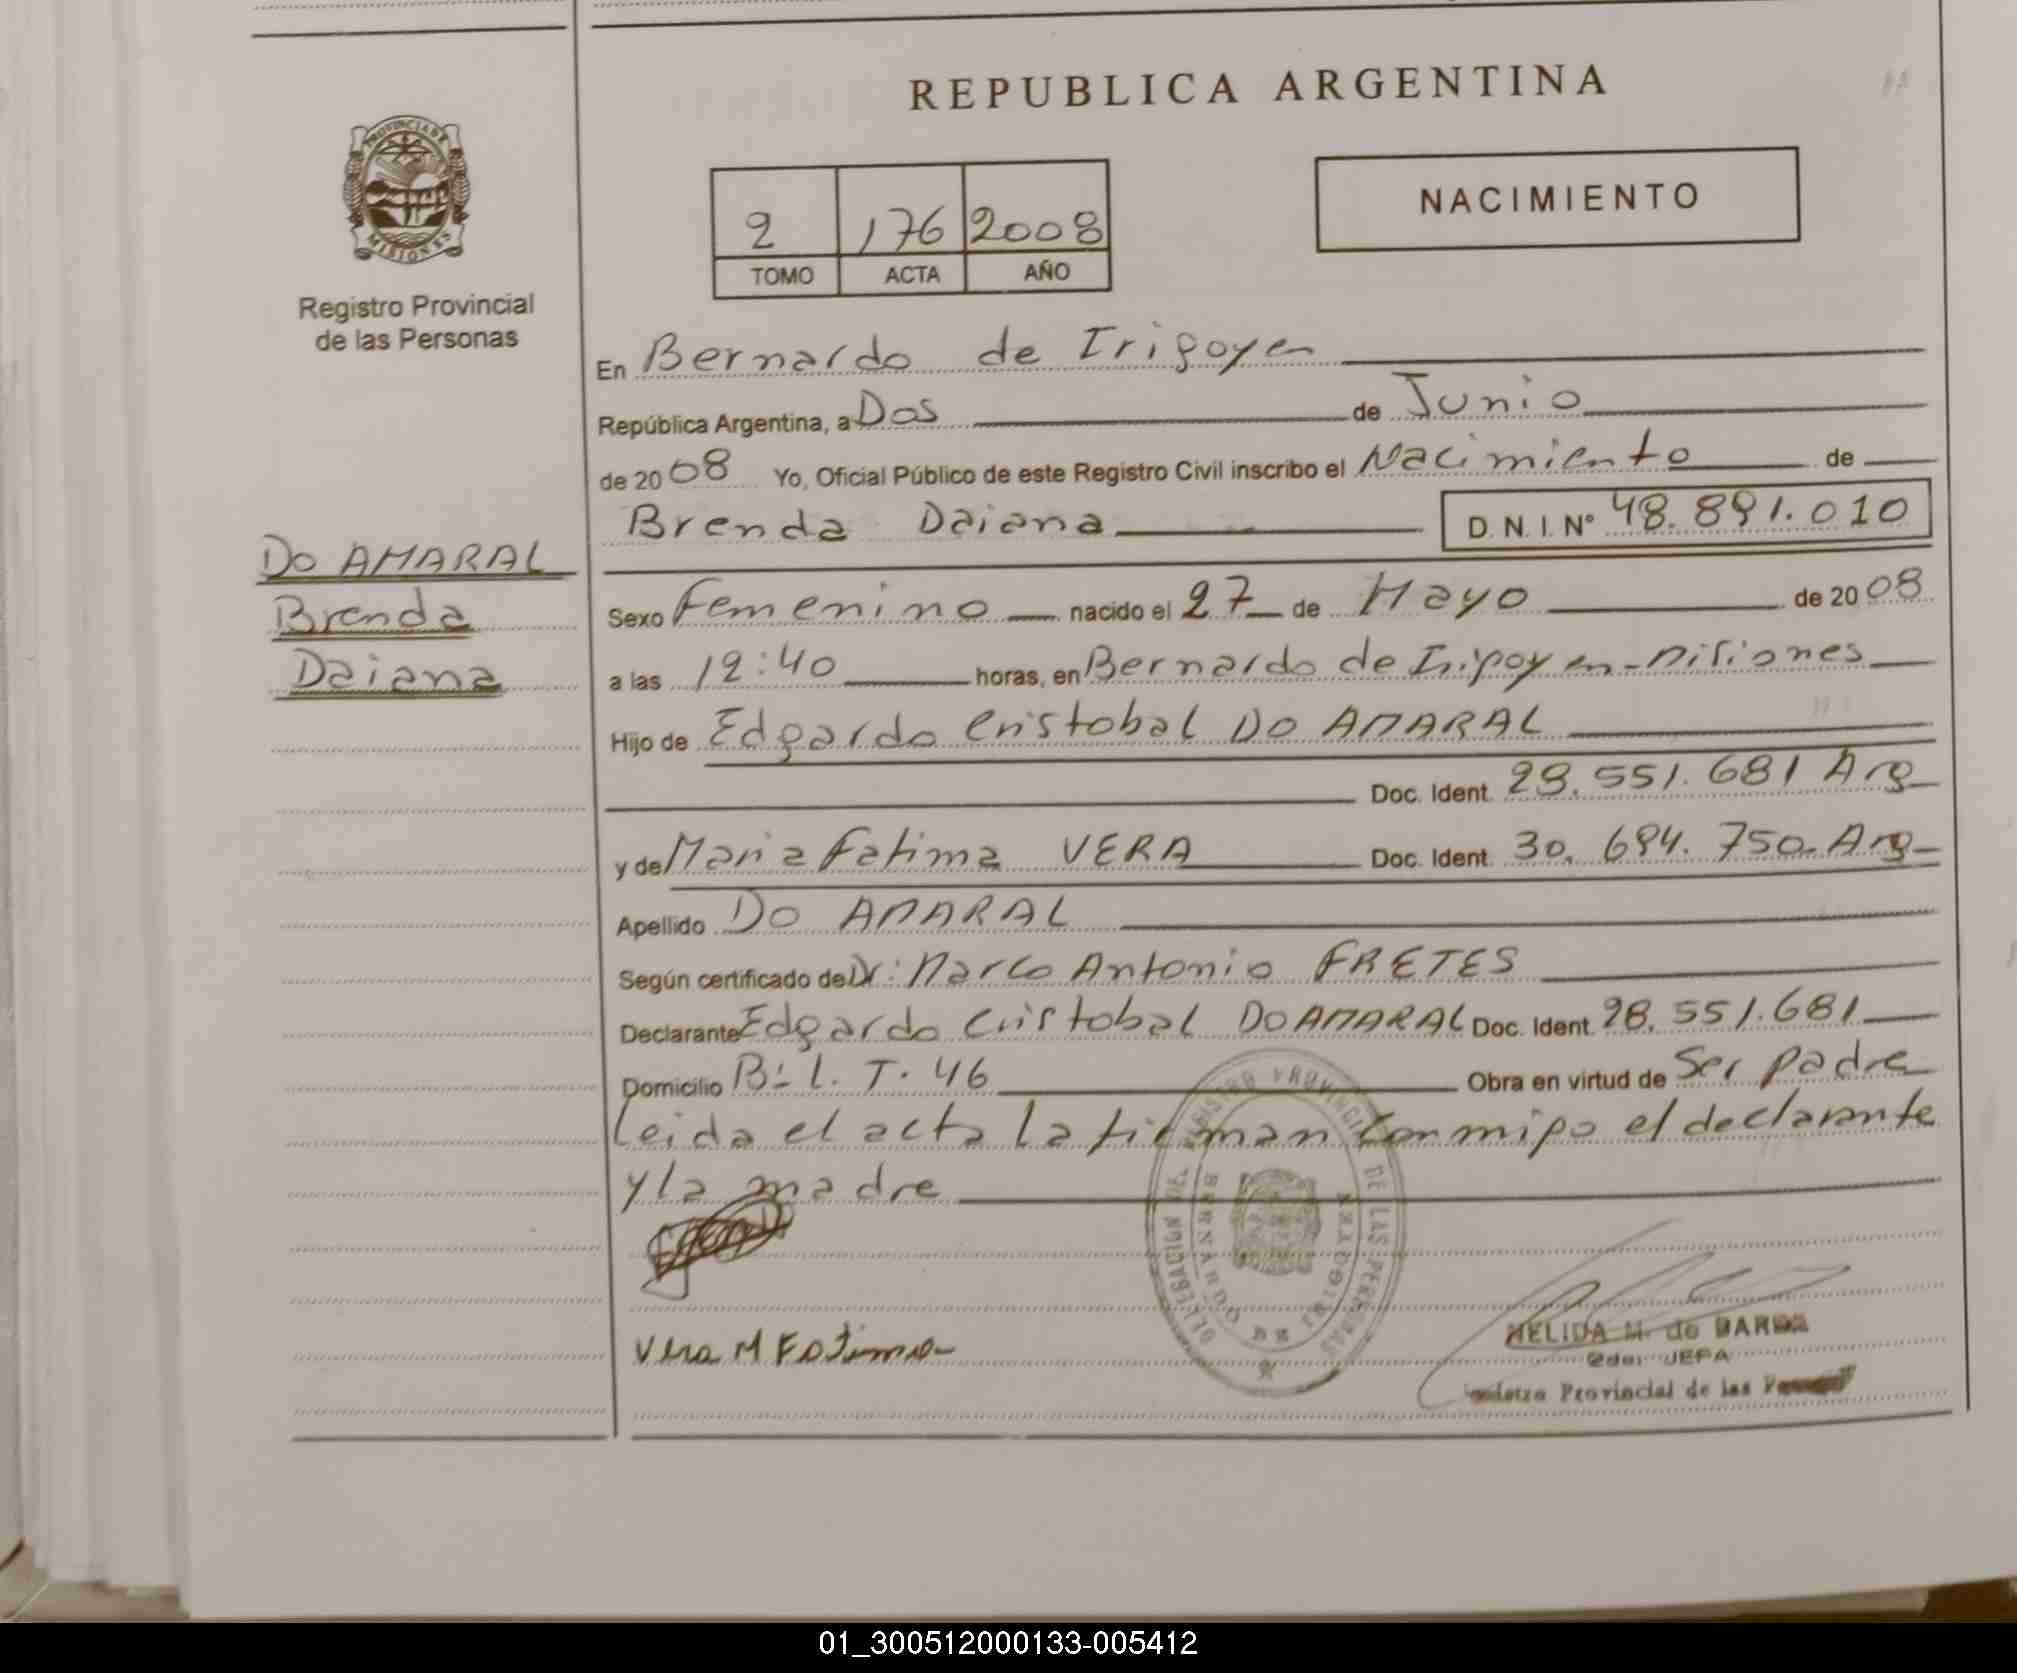 REPUBLICA ARGENTINA
PROVINCIA DE
MISIONES
Registro Provincial
de las Personas
2 176 2008
TOMO ACTA AÑO
NACIMIENTO
En Bernardo de Irigoyen
República Argentina, a Dos de Junio
de 2008 Yo, Oficial Público de este Registro Civil inscribo el Nacimiento de
Brenda Daiana D. N. I. Nº 48.891.010
DO AMARAL
Brenda
Daiana
Sexo Femenino nacido el 27 de Mayo de 2008
a las 12:40 horas, en Bernardo de Irigoyen - Misiones
Hijo de Edgardo Cristobal DO AMARAL
Doc. Ident. 28.551.681 Arg
y de Maria Fatima VERA Doc. Ident. 30.694.750 Arg
Apellido DO AMARAL
Según certificado de Dr: Marco Antonio FRETES
Declarante Edgardo Cristobal DO AMARAL Doc. Ident. 28.551.681
Domicilio Bº L. T. 46 Obra en virtud de Ser padre
Leida el acta la firman conmigo el declarante
y la madre
REGISTRO PROVINCIAL DE LAS PERSONAS
DELEGACION
BERNARDO DE IRIGOYEN
Vera M Fatima
NELIDA M. de
JEFA
Provincial de las
01_300512000133-005412